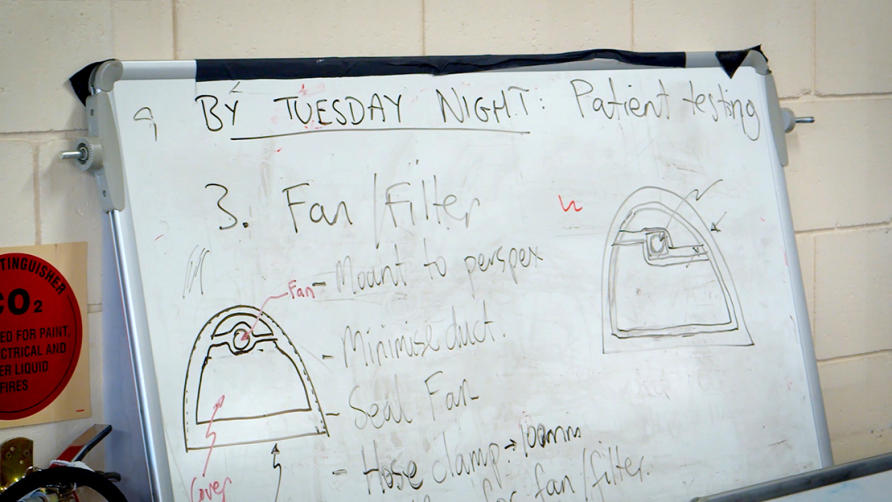 BY TUESDAY NIGHT: Patient testing
3. Fan/Filter
- Mount to perspex
Fan
- Minimise duct.
- Seal Fan
- Hose clamp → 100mm
for fan/filter.
Cover
TINGUISHER
CO2
ED FOR PAINT,
ECTRICAL AND
ER LIQUID
FIRES